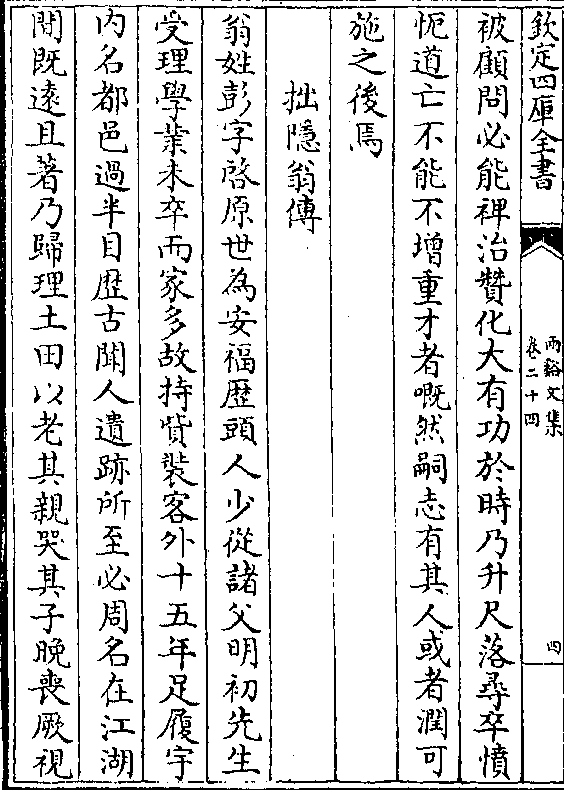 欽定四庫全書
兩谿文集
卷二十四
四
被顧問必能裨治贊化大有功於時乃升尺落尋卒憤
怩道亡不能不增重才者嘅然嗣志有其人或者潤可
施之後焉
拙隱翁傳
翁姓彭字啓原世為安福歴頭人少從諸父明初先生
受理學業未卒而家多故持貲裝客外十五年足履宇
内名都邑過半目歴古聞人遺跡所至必周名在江湖
間既遠且著乃歸理土田以老其親哭其子晚喪厥視